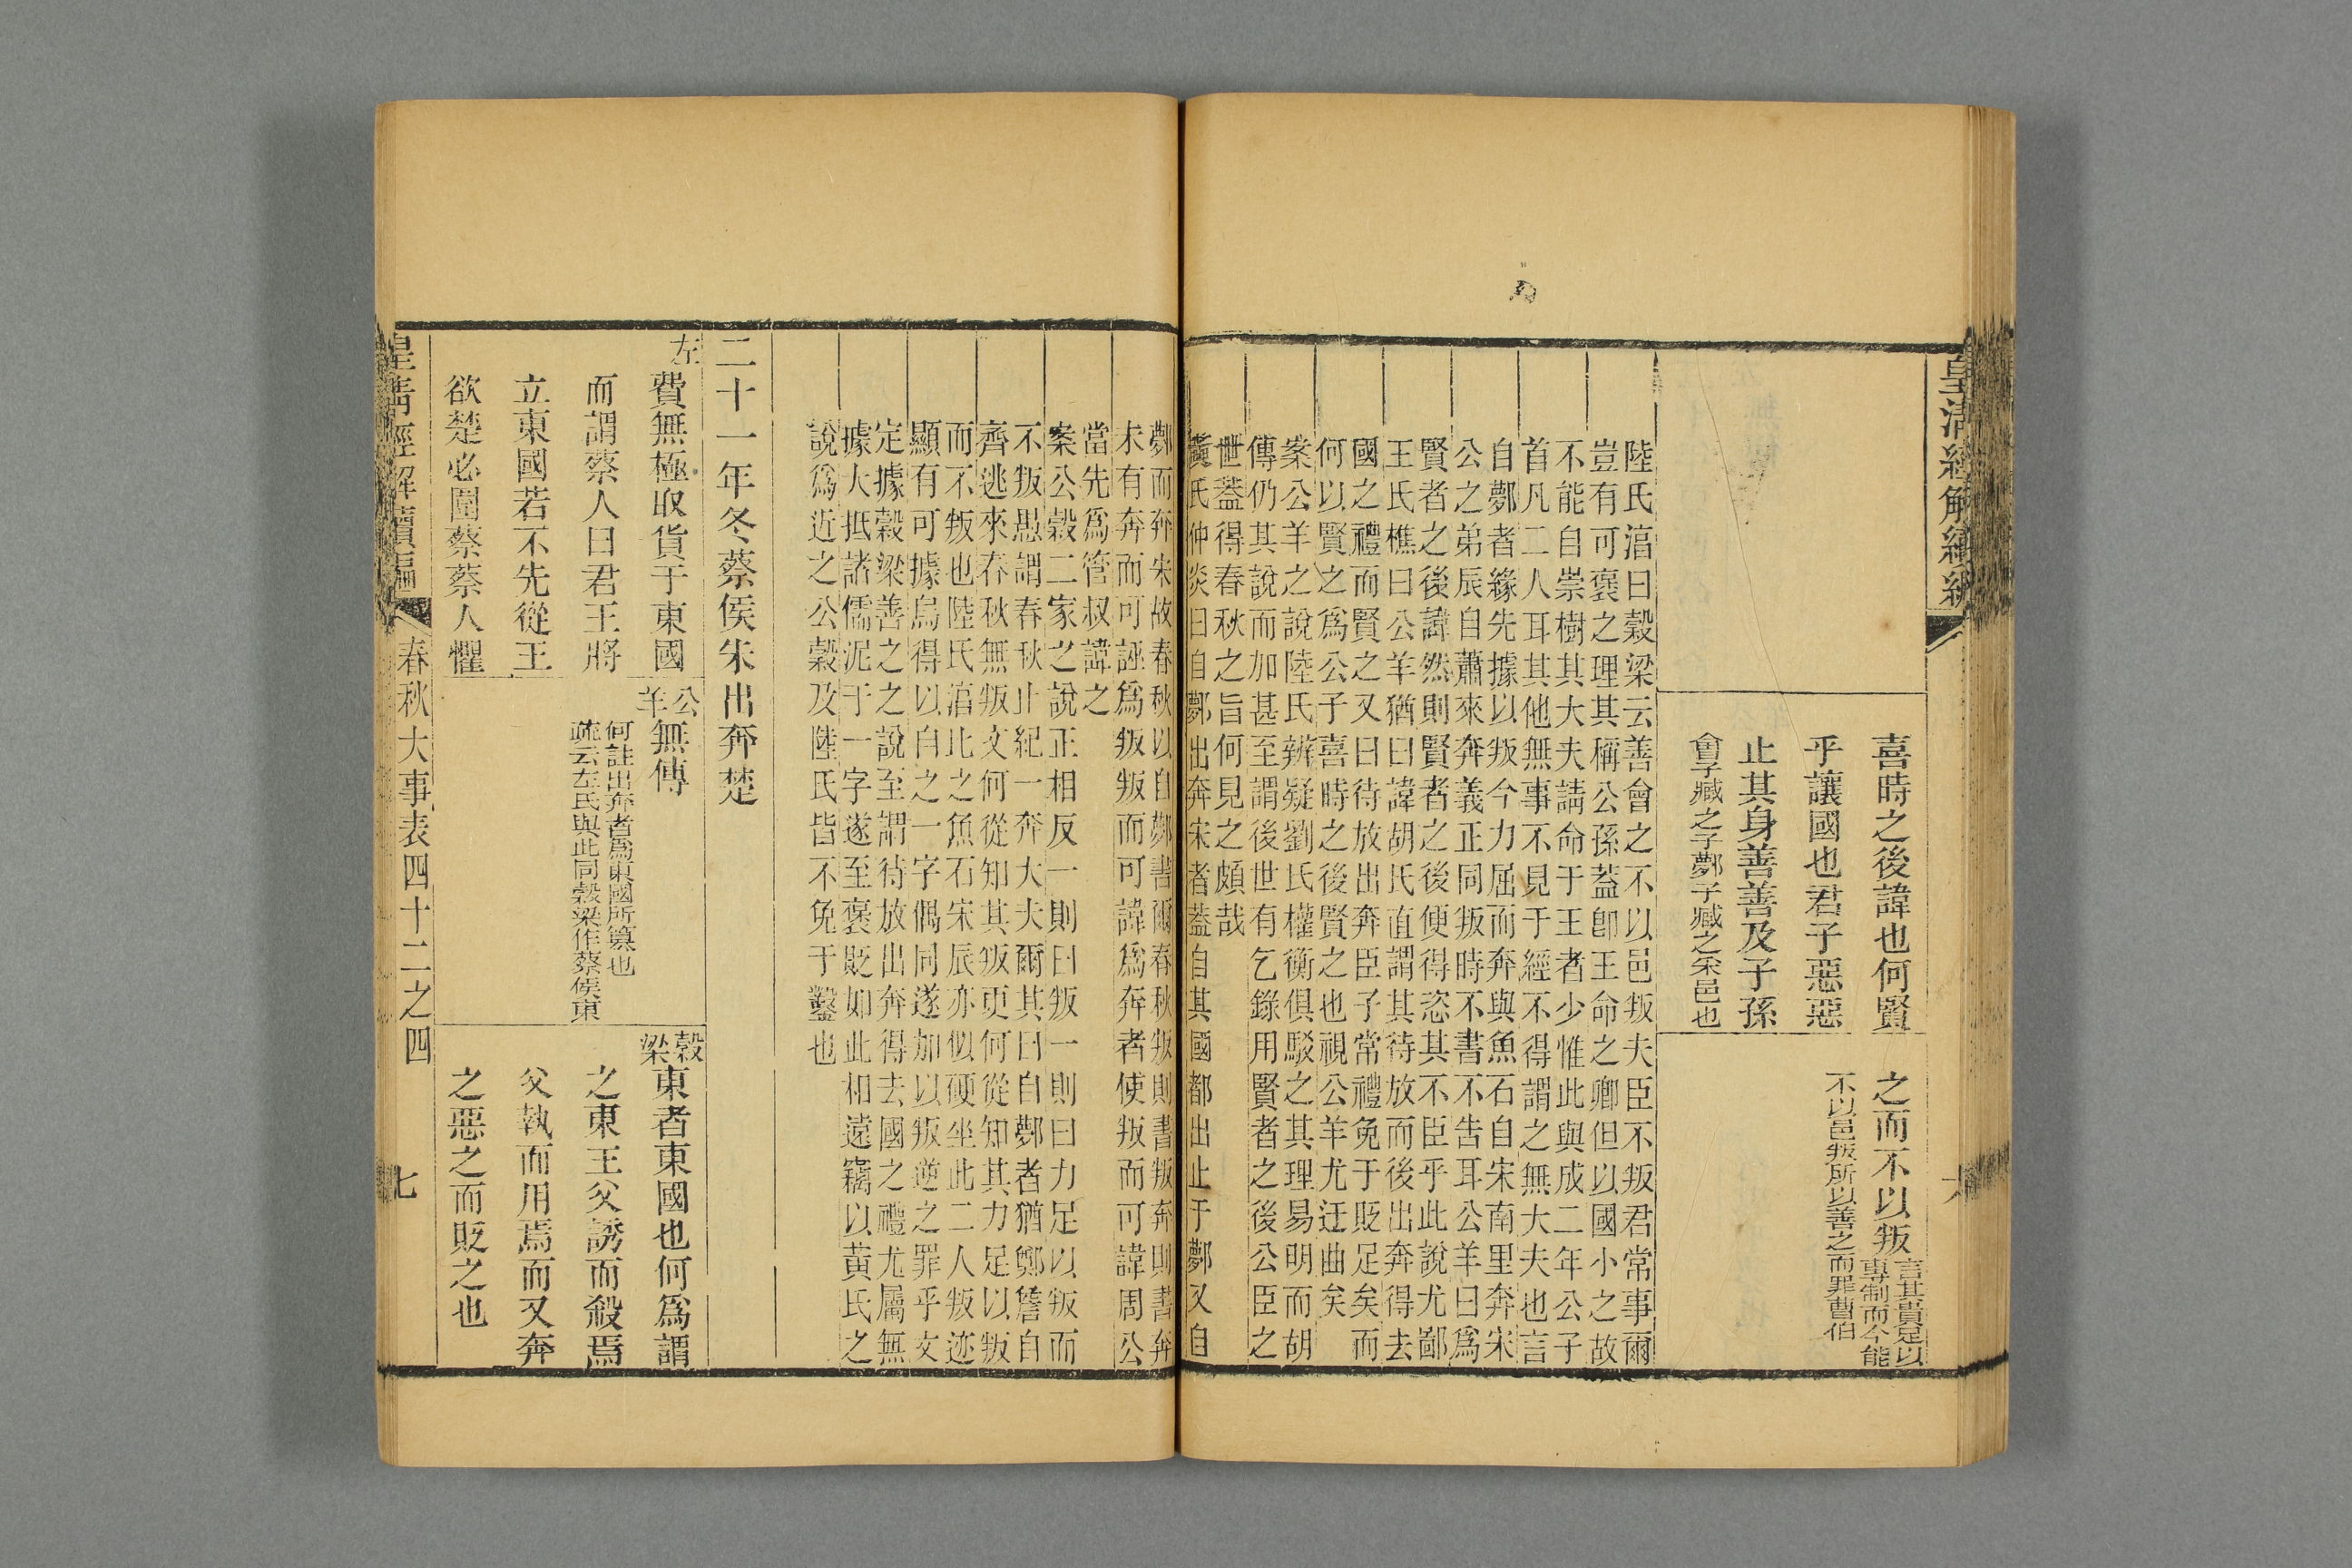 皇清經解續編
喜時之後諱也何賢
乎讓國也君子惡惡
止其身善善及子孫
會子臧之子鄸子臧之采邑也
之而不以叛
言其貴足以
專制而今能
不以邑叛所以善之而罪曹伯
陸氏湻曰穀梁云善會之不以邑叛夫臣不叛君常事爾
豈有可襃之理其稱公孫蓋卽王命之卿但以國小之故
不能自崇樹其大夫請命于王者少惟此與成二年公子
首凡二人耳其他無事不見于經不得謂之無大夫也言
自鄸者緣先據以叛今力屈而奔與魚石自宋南里奔宋
公之弟辰自蕭來奔義正同叛時不書不告耳公羊曰爲
賢者之後諱然則賢者之後便得恣其不臣乎此說尤鄙
王氏樵曰公羊猶曰諱胡氏直謂其待放而後出奔得去
國之禮而賢之又曰待放出奔臣子常禮免于貶足矣而
何以賢之爲公子喜時之後賢之也視公羊尤迂曲矣
案公羊之說陸氏辨疑劉氏權衡俱駁之其理易明而胡
傳仍其說而加甚至謂後世有乞錄用賢者之後公臣之
世蓋得春秋之旨何見之頗哉
黃氏仲炎曰自鄸出奔宋者蓋自其國都出止于鄸又自
六
鄸而奔宋故春秋以自鄸書爾春秋叛則書叛奔則書奔
未有奔而可誣爲叛叛而可諱爲奔者使叛而可諱周公
當先爲管叔諱之
案公穀二家之說正相反一則曰叛一則曰力足以叛而
不叛愚謂春秋止紀一奔大夫爾其曰自鄸者猶鄭詹自
齊逃來春秋無叛文何從知其叛更何從知其力足以叛
而不叛也陸氏湻比之魚石宋辰亦似硬坐此二人叛迹
顯有可據烏得以自之一字偶同遂加以叛逆之罪乎文
定據穀梁善之之說至謂待放出奔得去國之禮尤屬無
據大抵諸儒泥于一字遂至襃貶如此相遠竊以黃氏之
說爲近之公穀及陸氏皆不免于鑿也
二十一年冬蔡侯朱出奔楚
左
費無極取貨于東國
而謂蔡人曰君王將
立東國若不先從王
欲楚必圍蔡蔡人懼
公羊
無傳
何註出奔者爲東國所篡也
疏云左氏與此同穀梁作蔡侯東
穀梁
東者東國也何爲謂
之東王父誘而殺焉
父執而用焉而又奔
之惡之而貶之也
皇清經解續編
春秋大事表四十二之四
七